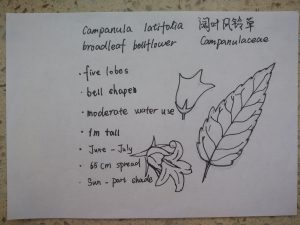 Campanula latifolia 阔叶风铃草
broadleaf bellflower Campanulaceae
· five lobes
· bell shaped
· moderate water use
· 1m tall
· June - July
· 65 cm spread
· Sun - part shade